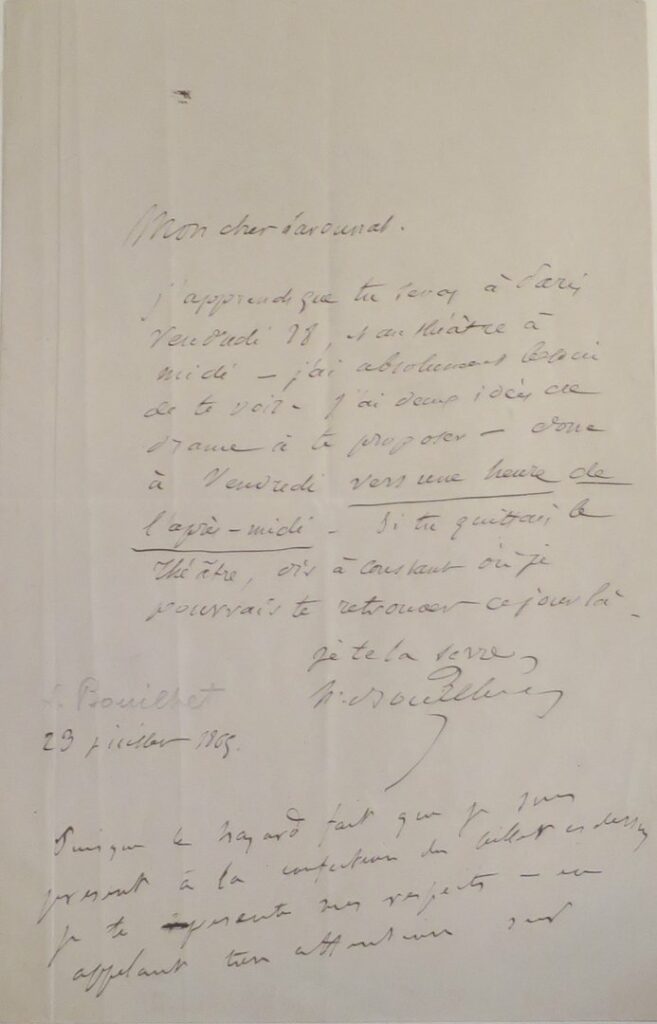 Mon cher Duquesnel.
j'apprends que tu seras à Paris
Vendredi 28, et au théâtre à
midi – j'ai absolument besoin
de te voir – j'ai deux idées de
drame à te proposer – donc
à Vendredi vers une heure de
l'après-midi – Si tu quittais le
théâtre, dis à Constant où je
pourrais te retrouver ce jour là –
je te la serre,
L. Bouilhet
L. Bouilhet
23 juillet 1865.
Puisque le hazard fait que je suis
présent à la confection du billet ci dessus
je te présente mes respects – en
appelant ton attention sur